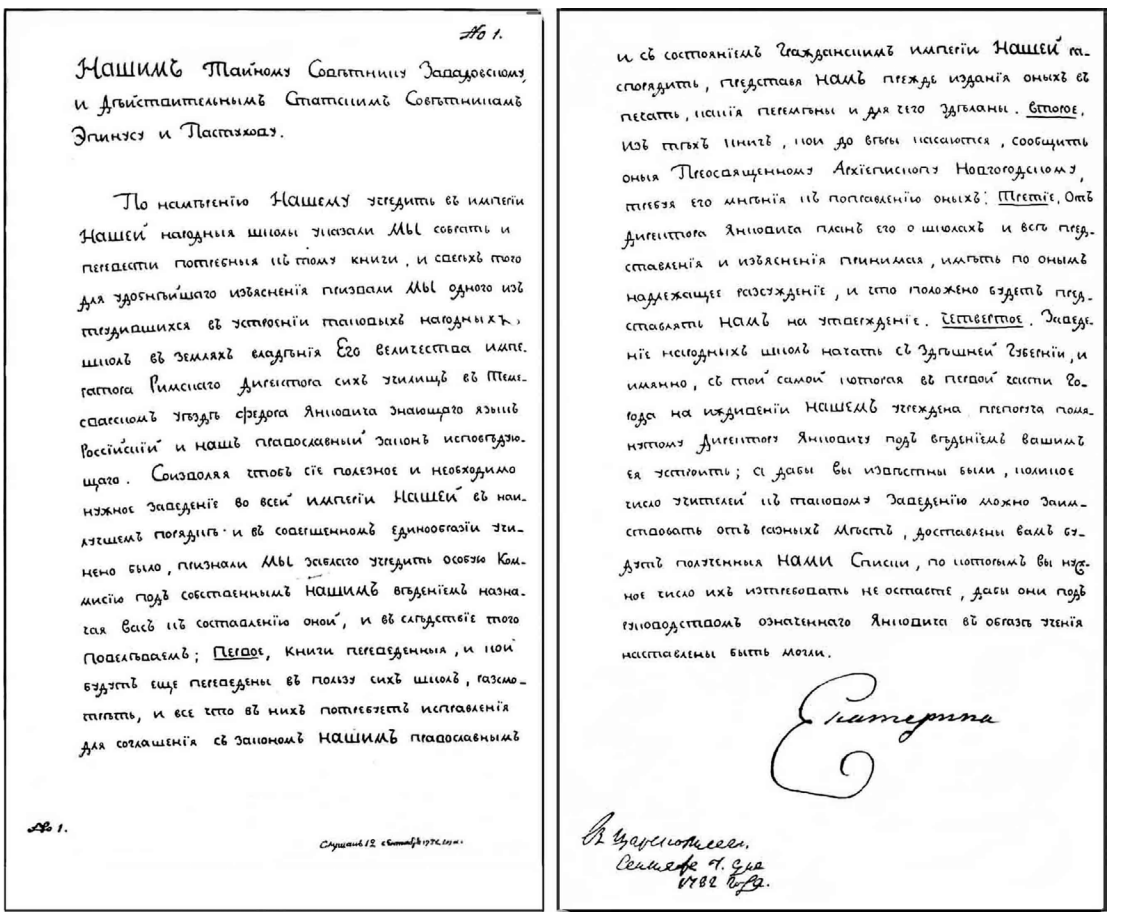 № 1.
Нашимъ Тайному Совѣтнику Завадовскому,
и Дѣйствительнымъ Статскимъ Совѣтникамъ
Эпинусу и Пастухову.
По намѣренію Нашему учредить въ имперіи
Нашей народныя школы указали МЫ собрать и
перевести потребныя къ тому книги, и сверьхъ того
для удобнѣйшаго изъясненія призвали МЫ одного изъ
трудившихся въ устроеніи таковыхъ народныхъ
школъ въ Земляхъ владѣнія Его Величества импе-
ратора Римскаго Директора сихъ училищъ въ Теме-
сварскомъ уѣздѣ Федора Янковича знающаго языкъ
Россійскій и нашъ православный законъ исповѣдую-
щаго. Соизволяя чтобъ сіе полезное и необходимо
нужное Заведеніе во всей имперіи Нашей въ наи-
лучшемъ порядкѣ и въ совершенномъ единообразіи учи-
нено было, признали МЫ заблаго учредить особую Ком-
мисію подъ собственнымъ нашимъ вѣденіемъ назна-
чая васъ къ составленію оной, и въ слѣдствіе того
Повелѣваемъ; Первое, Книги переведенныя, и кои
будутъ еще переведены въ пользу сихъ школъ, разсмо-
трѣть, и все что въ нихъ потребуетъ исправленія
для соглашенія съ Закономъ нашимъ православнымъ
№ 1.
Слушанъ 12 сентября 1782 года.
и съ состояніемъ Гражданскимъ имперіи Нашей ра-
спорядить, представя намъ прежде изданія оныхъ въ
печать, какія перемѣны и для чего здѣланы. Второе,
Изъ тѣхъ книгъ, кои до вѣры касаются, сообщить
оныя Преосвященному Архіепископу Новгородскому,
требуя его мнѣнія къ поправленію оныхъ: Третіе, Отъ
Директора Янковича планъ его о школахъ и всѣ пред-
ставленія и изъясненія принимая, имѣть по онымъ
надлежащее разсужденіе, и что положено будетъ пред-
ставлять намъ на утвержденіе. Четвертое. Заведе-
ніе народныхъ школъ начать съ Здѣшней Губерніи, и
имянно, съ той самой которая въ первой части Го-
рода на иждивеніи нашемъ учреждена, препоруча помя-
нутому Директору Янковичу подъ вѣденіемъ вашимъ
ея устроить; а дабы вы извѣстны были, коликое
число учителей къ таковому Заведенію можно заим-
ствовать отъ разныхъ Мѣстъ, доставлены вамъ бу-
дутъ полученныя нами Списки, по которымъ вы нуж-
ное число ихъ изтребовать не оставте, дабы они подъ
руководствомъ означеннаго Янковича въ образѣ ученія
наставлены быть могли.
Екатерина
Въ Царскомъ селѣ.
Сентября 7. дня
1782 года.